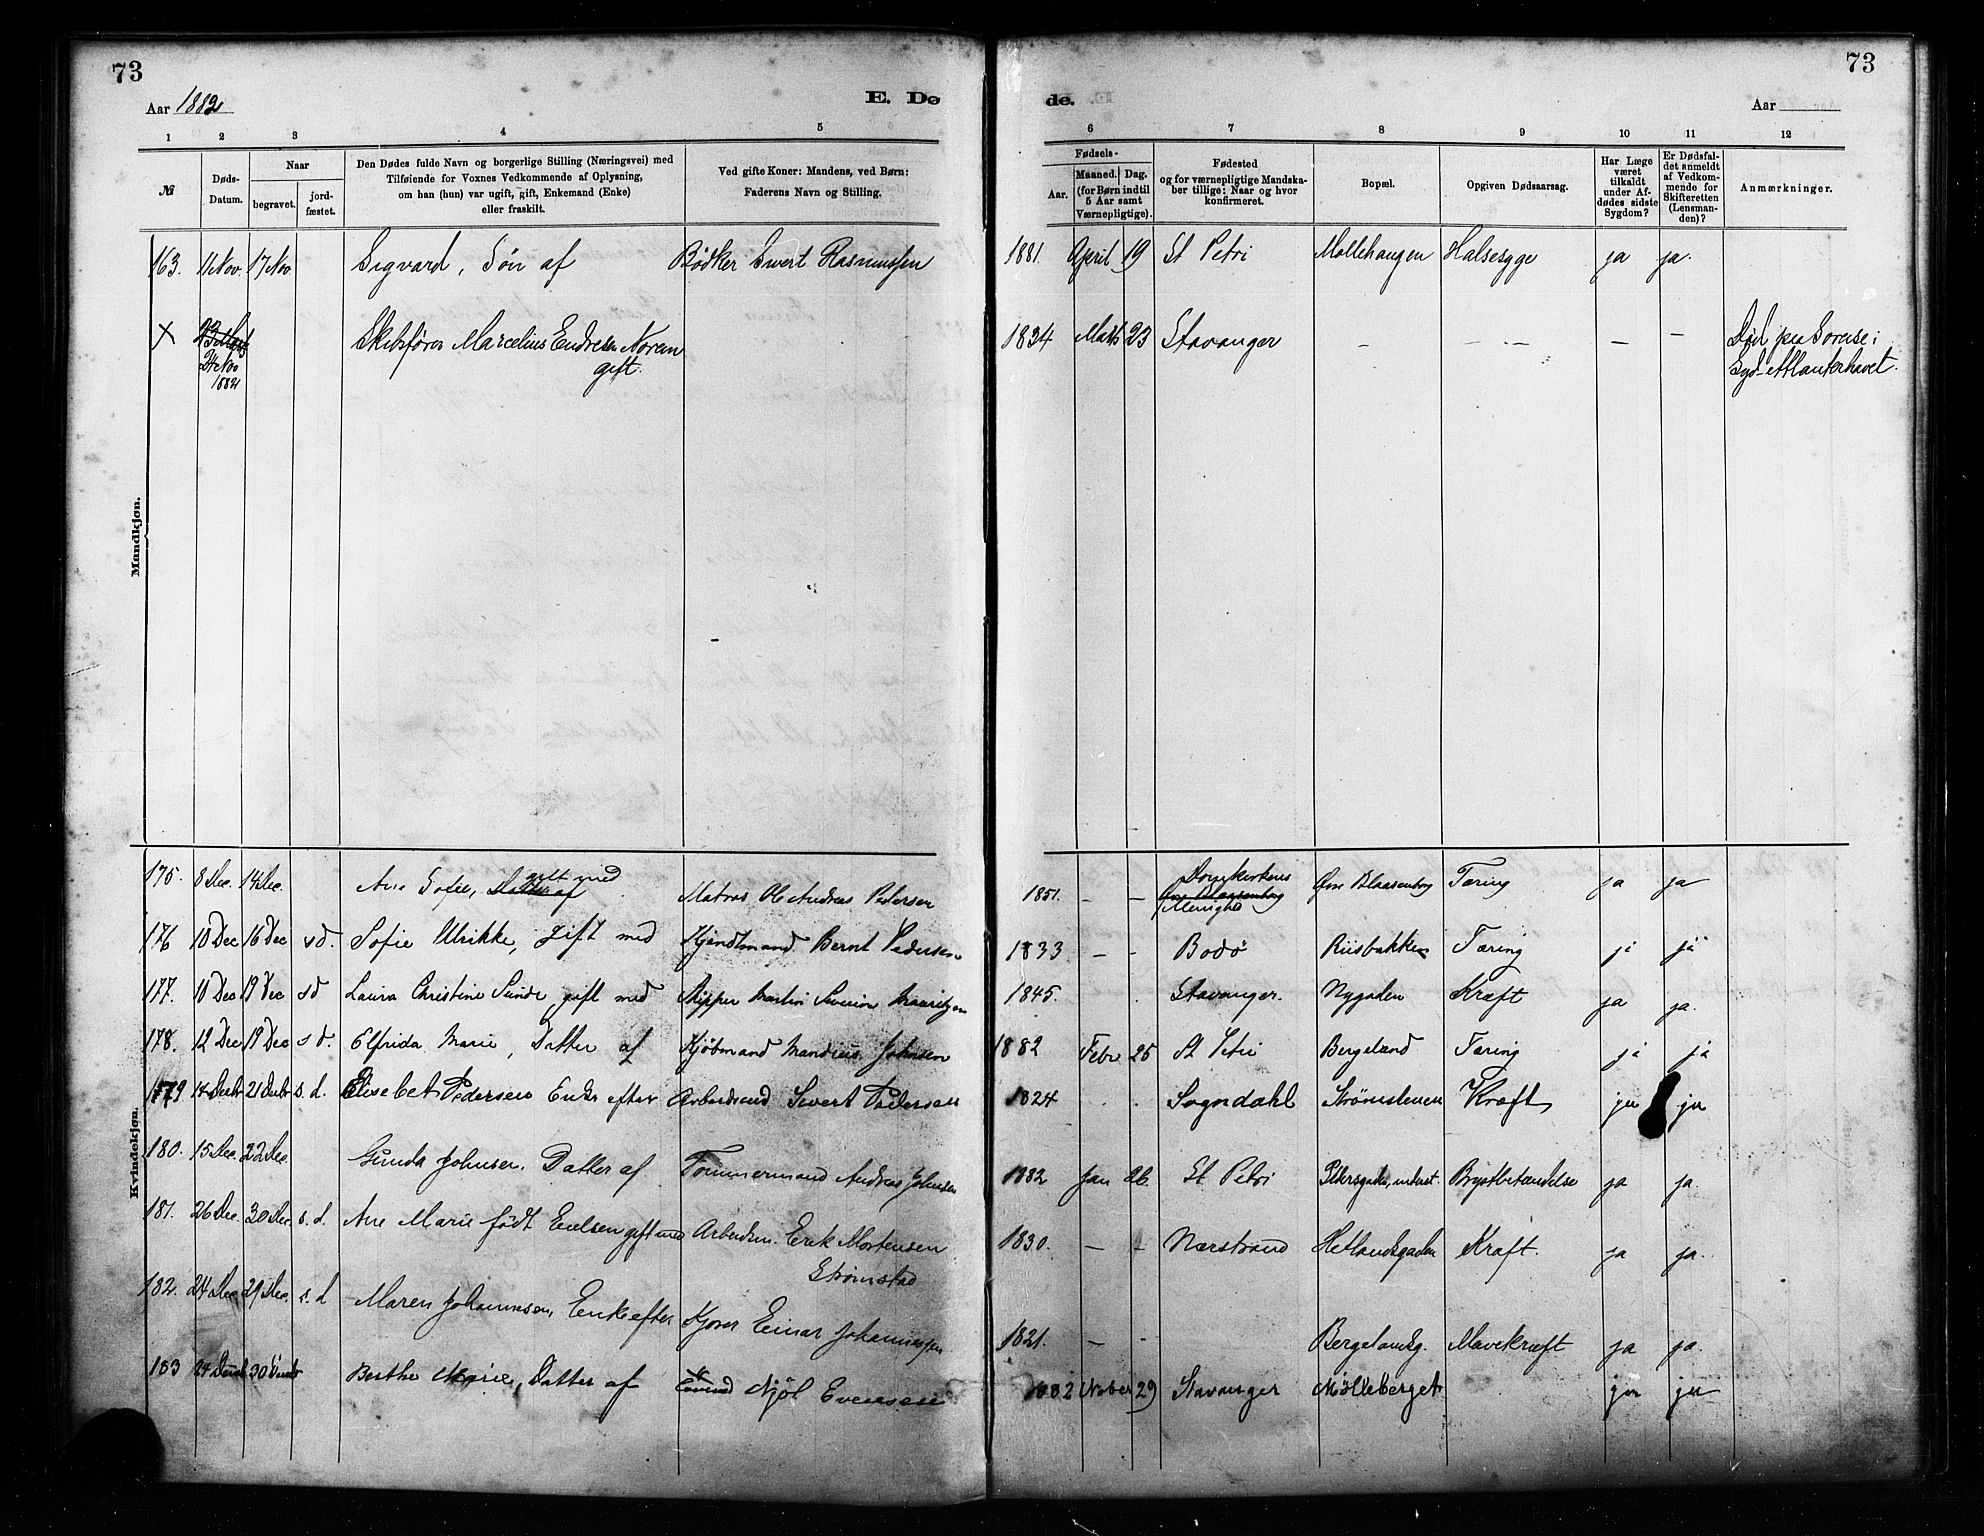 73
Aar 1882
E. Dø
1 2 3 4 5
№
Døds-
Datum.
Naar
begravet.
jord-
fæstet.
Den Dødes fulde Navn og borgerlige Stilling (Næringsvei) med
Tilføiende for Voxnes Vedkommende af Oplysning,
om han (hun) var ugift, gift, Enkemand (Enke)
eller fraskilt.
Ved gifte Koner: Mandens, ved Børn:
Faderens Navn og Stilling.
Mandkjøn.
163. 11 Nov. 17 Nov Sigvard, Søn af Bødker Sivert Rasmussen
Skibsfører Marcelius Endresen Noren
24 Nov
1882
gift.
Kvindekjøn.
175. 8 Dec. 14 Dec. Ane Sofie, Datter af gift med Matros Ole Andreas Pedersen
176 10 Dec 16 Dec s.d. Sofie Ulrikke, gift med Kjendtmand Bernt Pedersen
177. 10 Dec 19 Dec s d Laura Christine Sunde gift med Skipper Martin Severin Mauritzen
178. 12 Dec 19 Dec s d. Elfrida Marie, Datter af Kjøbmand Mandius Johnsen
179 14 Decbr 21 Decbr s. d. Elisebet Pedersen Enke efter Arbeidsmd Sivert Pedersen
180. 15 Dec. 22 Dec. Gunda Johnsen. Datter af Tømmermand Andreas Johnsen
181. 26 Dec. 30 Dec. s. d. Ane Marie født Eielsen gift med Arbeidsm. Erik Mortensen
Strømstad
182. 24 Dec 29 Dec. s. d Maren Johannesen, Enke efter Kjører Einar Johannessen
183 24 Decbr 30 Decbr Berthe Marie, Datter af Njøl Evensen
73
de.
Aar
6 7 8 9 10 11 12
Fødsels-
Aar.
Maaned. Dag.
(for Børn indtil
5 Aar samt
Værnepligtige).
Fødested
og for værnepligtige Mandska-
ber tillige: Naar og hvor
konfirmeret.
Bopæl.
Opgiven Dødsaarsag.
Har Læge
været
tilkaldt
under Af-
dødes sidste
Sygdom?
Er Dødsfal-
det anmeldt
af Vedkom-
mende for
Skifteretten
(Lensman-
den)?
Anmærkninger.
1881. April 19 St Petri Møllehaugen Halsesyge ja ja.
1834 Marts 23 Stavanger – – – – – Død paa Søreise i
Syd-Atlanterhavet.
1851. – – Domkirkens Menighd Øvre Blaasenborg Tæring ja ja
1833 – – Bodø Riisbakken Tæring ja ja
1845. Stavanger. Nygaden Kræft ja ja.
1882 Febr 25 St Petri Bergeland Tæring ja ja
1824 Sogndahl Strømstenen Kræft ja ja
1882 Jan 26. St Petri Brystbetændelse ja ja.
1830. – – Nærstrand Hetlandsgaden Kræft. ja ja.
1821. – – Bergelandsg. Mavekræft ja ja.
1882 Novber 29 Stavanger Mølleberget ja ja